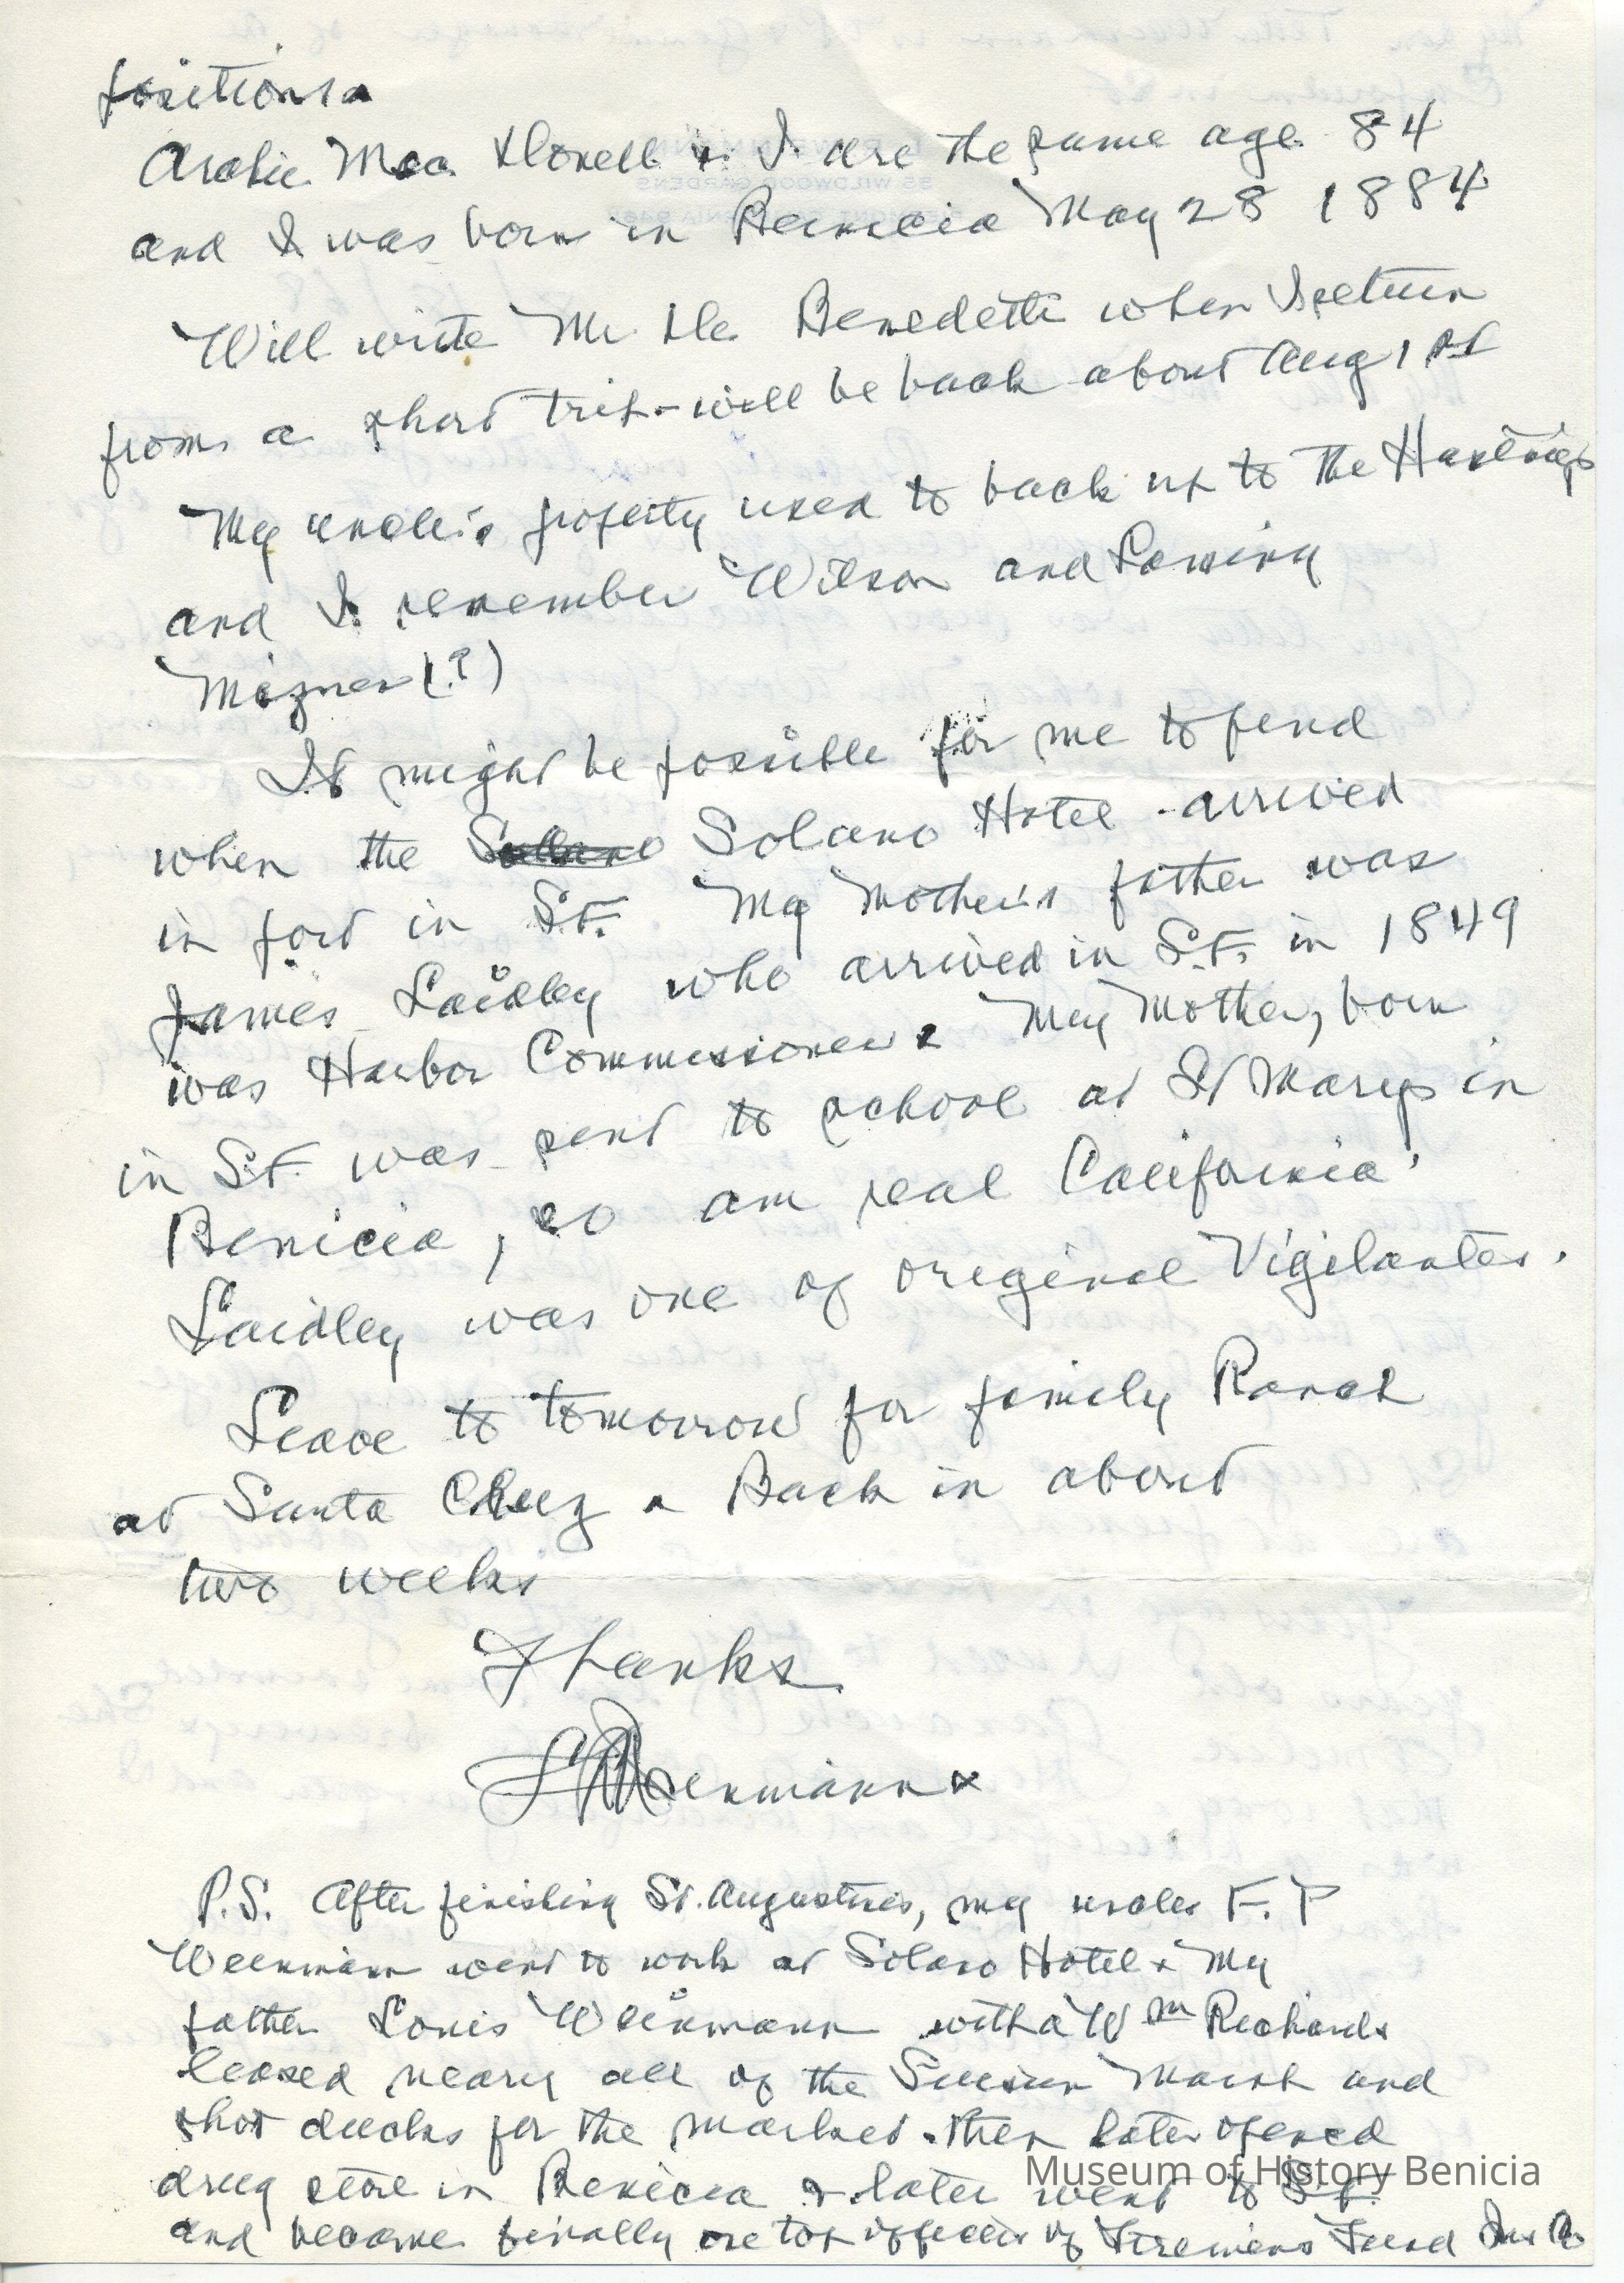 positions.
Archie Mac Donell & I are the same age 84
and I was born in Benicia May 28 1884
Will write Mr De Benedetti when I return
from a short trip - will be back about Aug 1st
My uncle's property used to back up to the Hastings
and I remember Wilson and Lansing
Mizner (?)
It might be possible for me to find
when the Solano Hotel arrived
in port in S.F. My Mother's father was
James Laidley who arrived in S.F. in 1849
was Harbor Commissioner. My Mother, born
in S.F. was sent to school at St Marys in
Benicia, so am real California.
Laidley was one of original Vigilantes.
Leave to tomorrow for family Ranch
at Santa Cruz. Back in about
two weeks
Thanks
Weinmann
P.S. After finishing St. Augustines, my uncle F. P
Weinmann went to work at Solano Hotel & My
father Louis Weinmann with a Wm Richards
leased nearly all of the Suisun Marsh and
shot ducks for the market. Then later opened
drug store in Benicia & later went to S.F.
and became finally one top officer of Firemens Fund Ins Co
Museum of History Benicia